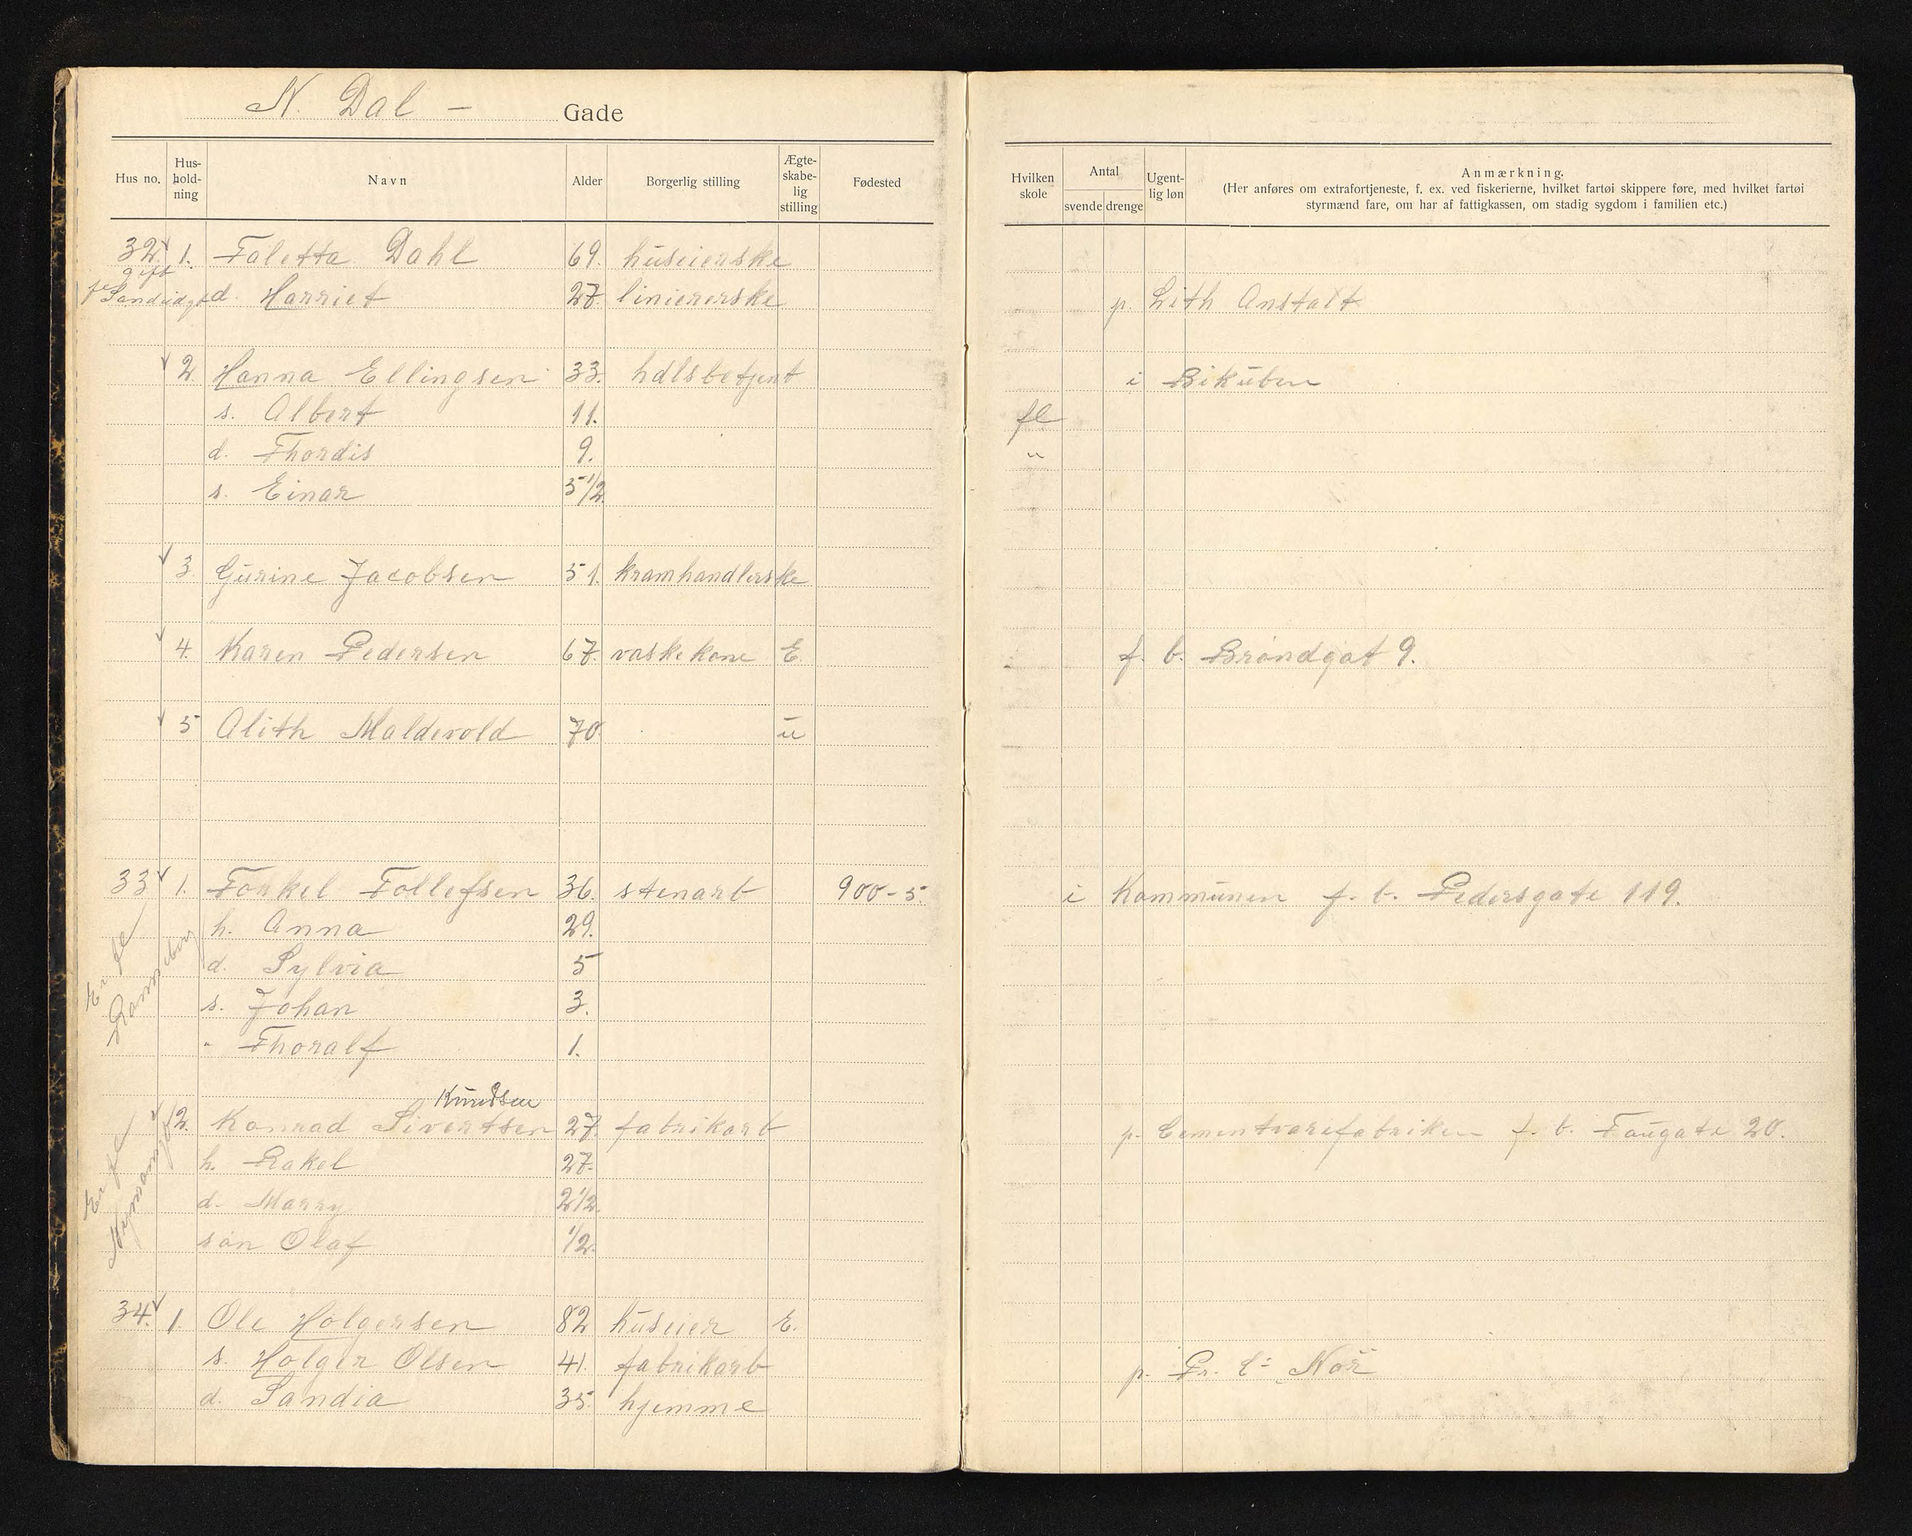 N. Dal - Gade
Hus no. Hus-hold-ning Navn Alder Borgerlig stilling Ægte-skabe-lig stilling Fødested
Hvilken skole Antal svende drenge Ugent-lig løn Anmærkning.
(Her anføres om extrafortjeneste, f. ex. ved fiskerierne, hvilket fartøi skippere føre, med hvilket fartøi
styrmænd fare, om har af fattigkassen, om stadig sygdom i familien etc.)
32. 1. Taletta Dahl 69. huseierske
gift
d. Harriet 27. liniererske p. Lith Anstalt
2. Hanna Ellingsen 33. hdlsbetjent i Bikuben
s. Albert 11. fl
d. Thordis 9. "
s. Einar 5 1/2
3. Gurine Jacobsen 51. kramhandlerske
4. Karen Pedersen 67. vaskekone E. f. b. Brøndgat 9.
5 Alith Maldevold 70. u
33 1. Torkel Tollefsen 36. stenarb 900-5. i Kommunen f. b. Pedersgate 119.
h. Anna 29.
d. Sylvia 5
s. Johan 3.
" Thoralf 1.
Er fl
Knudsen
2. Konrad Sivertsen 27. fabrikarb p. Cementvarefabriken f. b. Taugate 20.
h. Rakel 27.
d. Marry 2 1/2.
søn Olaf 1/2.
Er fl
34. 1. Ole Holgersen 82 huseier E.
s. Holger Olsen 41. fabrikarb p. Pr. C:
d. Sandia 35. hjemme